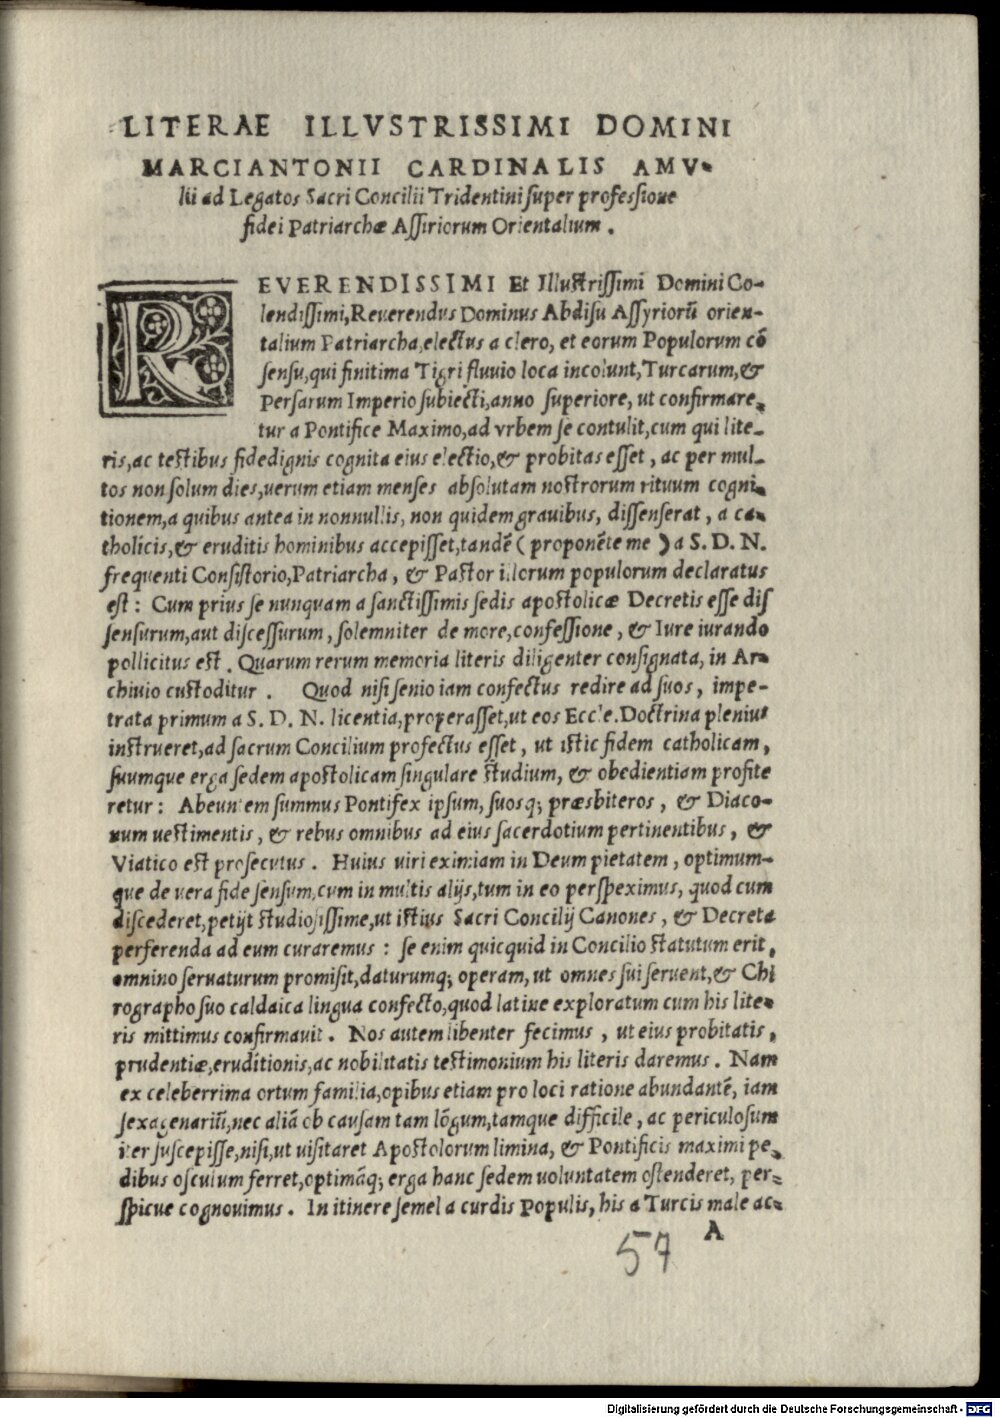 LITERAE ILLVSTRISSIMI DOMINI
MARCIANTONII CARDINALIS AMV-
lii ad Legatos Sacri Concilii Tridentini super professione
fidei Patriarchæ Assiriorum Orientalium.
REVERENDISSIMI Et Illustrissimi Domini Co-
lendissimi, Reuerendus Dominus Abdisu Assyriorũ orien-
talium Patriarcha, electus a clero, et eorum Populorum cõ
sensu, qui finitima Tigri fluuio loca incolunt, Turcarum, &
Persarum Imperio subiecti, anno superiore, ut confirmare-
tur a Pontifice Maximo, ad vrbem se contulit, cum qui lite-
ris, ac testibus fidedignis cognita eius electio, & probitas esset, ac per mul-
tos non solum dies, uerum etiam menses absolutam nostrorum rituum cogni-
tionem, a quibus antea in nonnullis, non quidem grauibus, dissenserat, a ca-
tholicis, & eruditis hominibus accepisset, tandẽ (proponẽte me) a S. D. N.
frequenti Consistorio, Patriarcha, & Pastor illorum populorum declaratus
est: Cum prius se nunquam a sanctissimis sedis apostolicæ Decretis esse dis
sensurum, aut discessurum, solemniter de more, confessione, & Iure iurando
pollicitus est. Quarum rerum memoria literis diligenter consignata, in Ar-
chiuio custoditur. Quod nisi senio iam confectus redire ad suos, impe-
trata primum a S. D. N. licentia, properasset, ut eos Eccle. Doctrina plenius
instrueret, ad sacrum Concilium profectus esset, ut istic fidem catholicam,
suumque erga sedem apostolicam singulare studium, & obedientiam profite
retur: Abeuntem summus Pontifex ipsum, suosq; præsbiteros, & Diaco-
num uestimentis, & rebus omnibus ad eius sacerdotium pertinentibus, &
Viatico est prosecutus. Huius uiri eximiam in Deum pietatem, optimum-
que de uera fide sensum, cum in multis alijs, tum in eo perspeximus, quod cum
discederet, petijt studiosissime, ut istius Sacri Concilij Canones, & Decreta
perferenda ad eum curaremus: se enim quicquid in Concilio statutum erit,
omnino seruaturum promisit, daturumq; operam, ut omnes sui seruent, & Chi
rographo suo caldaica lingua confecto, quod latine exploratum cum his lite-
ris mittimus confirmauit. Nos autem libenter fecimus, ut eius probitatis,
prudentiæ, eruditionis, ac nobilitatis testimonium his literis daremus. Nam
ex celeberrima ortum familia, opibus etiam pro loci ratione abundantẽ, iam
sexagenariũ, nec aliã ob causam tam lõgum, tamque difficile, ac periculosum
iter suscepisse, nisi, ut uisitaret Apostolorum limina, & Pontificis maximi pe-
dibus osculum ferret, optimãq; erga hanc sedem voluntatem ostenderet, per-
spicue cognouimus. In itinere semel a curdis Populis, bis a Turcis male ac-
A
57
Digitalisierung gefördert durch die Deutsche Forschungsgemeinschaft - DFG